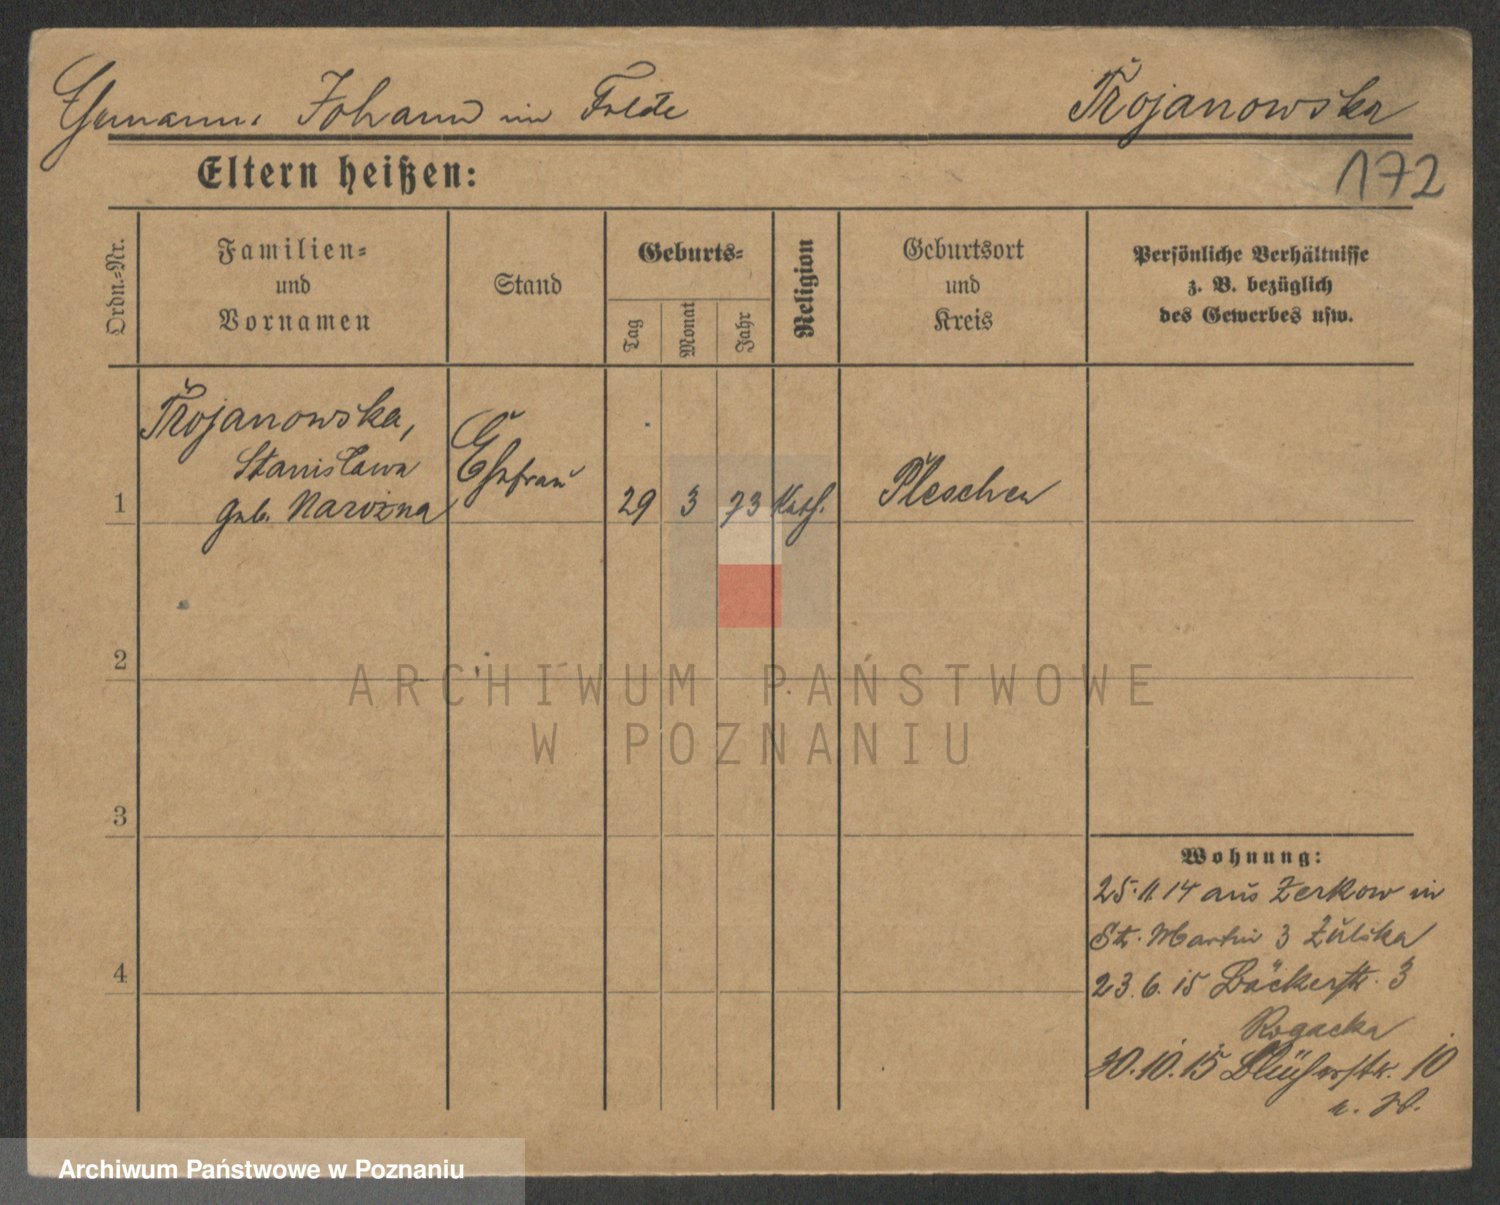 Ehemann: Johann im Felde Trojanowska
Eltern heißen: 172
Ordn.-Nr.
Familien-
und
Vornamen
Stand
Geburts-
Tag
Monat
Jahr
Religion
Geburtsort
und
Kreis
Persönliche Verhältnisse
z. B. bezüglich
des Gewerbes usw.
Trojanowska,
Stanisława
1 geb. Narożna Ehefrau 29 3 73 Kath. Pleschen
2
3
4
Wohnung:
25.11.14 aus Zerkow in
St. Martin 3
23.6.15 Bäckerstr. 3
Rogacka
30.10.15 Blücherstr. 10
ARCHIWUM PAŃSTWOWE
W POZNANIU
Archiwum Państwowe w Poznaniu